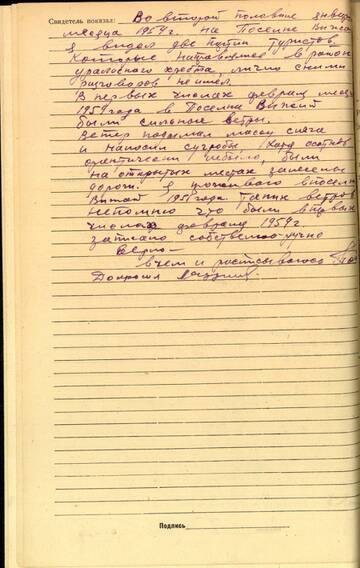 Свидетель показал: Во второй половине января
месяца 1959 г. на поселке Вижай
я видел две группы туристов,
которые направлялись в район
уральского хребта, лично с ними
разговоров не имел.
В первых числах февраля месяца
1959 года в поселке Вижай
были сильные ветры.
Ветер поднимал массу снега
и наносил сугробы,
практически небыло, были
на открытых местах занесены
дороги. Я проживаю в поселке
Вижай 1951 года. Таких ветров
непомню что были в первых
числах февраля 1959 г.
записано собственно-ручно
Верно —
в чем и расписываюсь
Допросил
Подпись